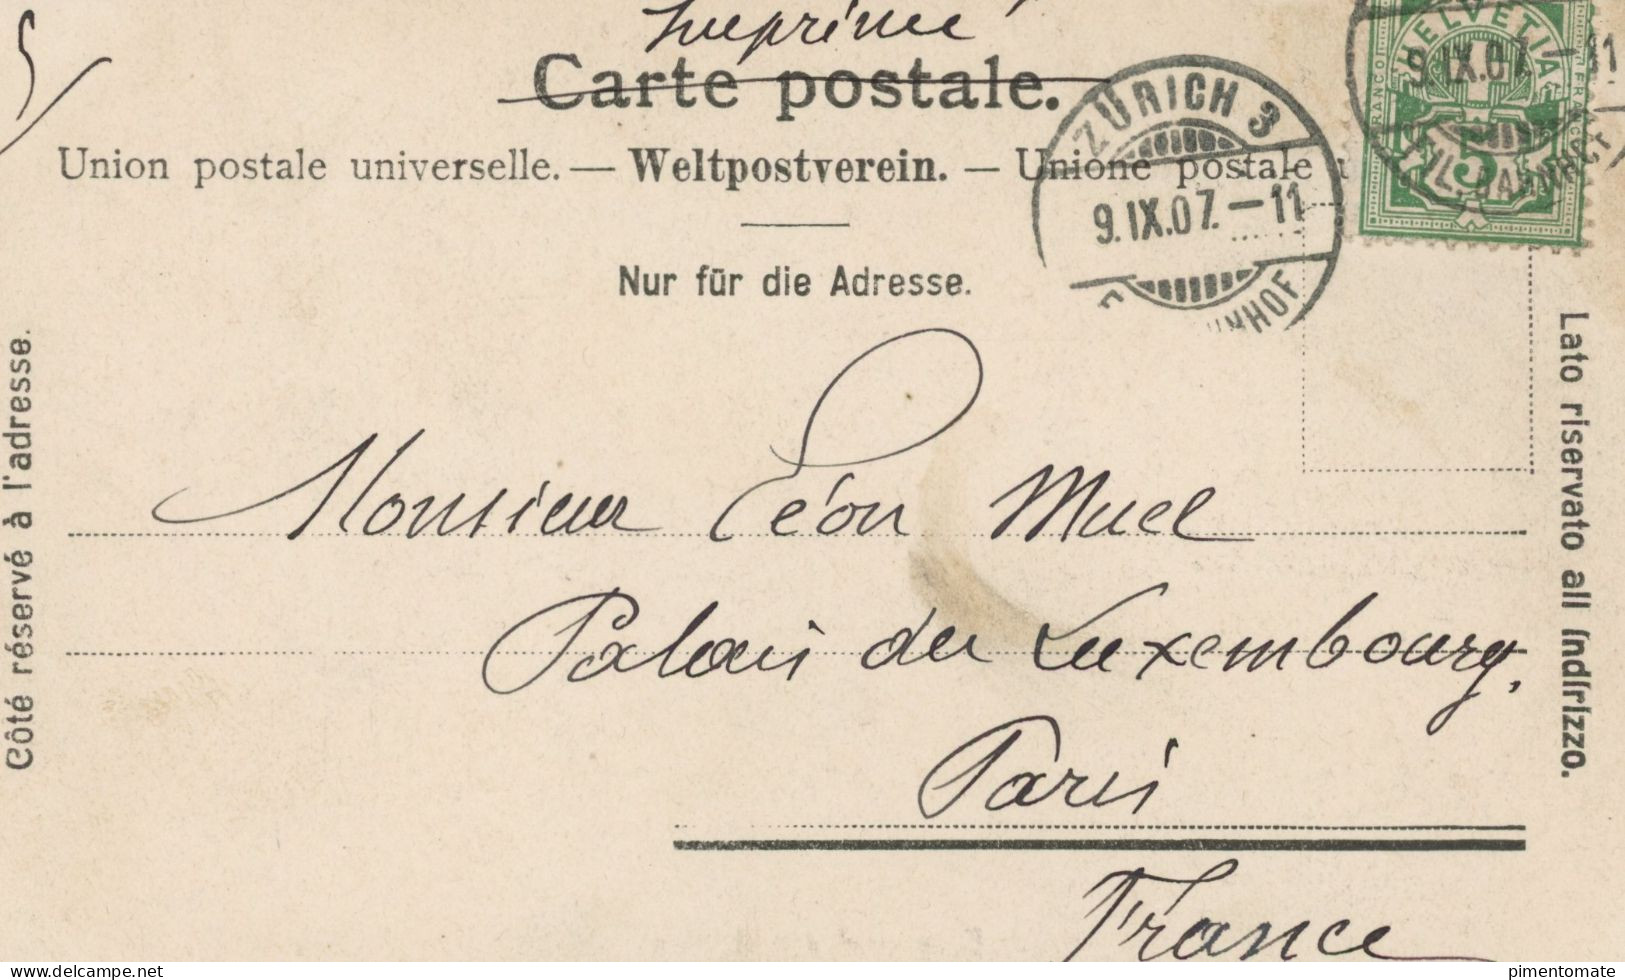 Imprimé
Carte postale.
Union postale universelle. — Weltpostverein. — Unione postale u
Nur für die Adresse.
ZÜRICH 3
9.IX.07.—11
HELVETIA
FRANCO
FRANCO
5
9.IX.07.—11
FIL. BAHNHOF
Côté réservé à l'adresse.
Lato riservato all indirizzo.
Monsieur Léon Muel
Palais du Luxembourg,
Paris
France
delcampe.net
pimentomate